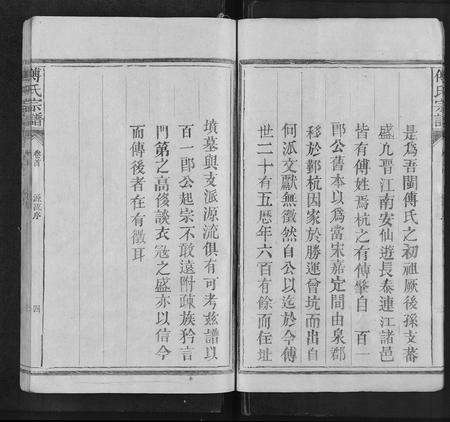 傅氏宗譜
是為吾閩傅氏之初祖厥後孫支蕃
盛凡晋江南安仙遊長泰連江諸邑
皆有傅姓焉杭之有傅肇自一百一
郎公舊本以為當宋嘉定間由泉郡
移於鄞杭因家於勝運曾坑而出自
何派文獻無徵然自公以迄於今傅
世二十有五歷年六百有餘而住址
墳墓與支派源流俱有可考兹譜以
百一郎公起宗不敢遠附疎族矜言
門第之高俊談衣冠之盛亦以信今
而傳後者在有徵耳
傅氏宗譜
卷首
源流序
四